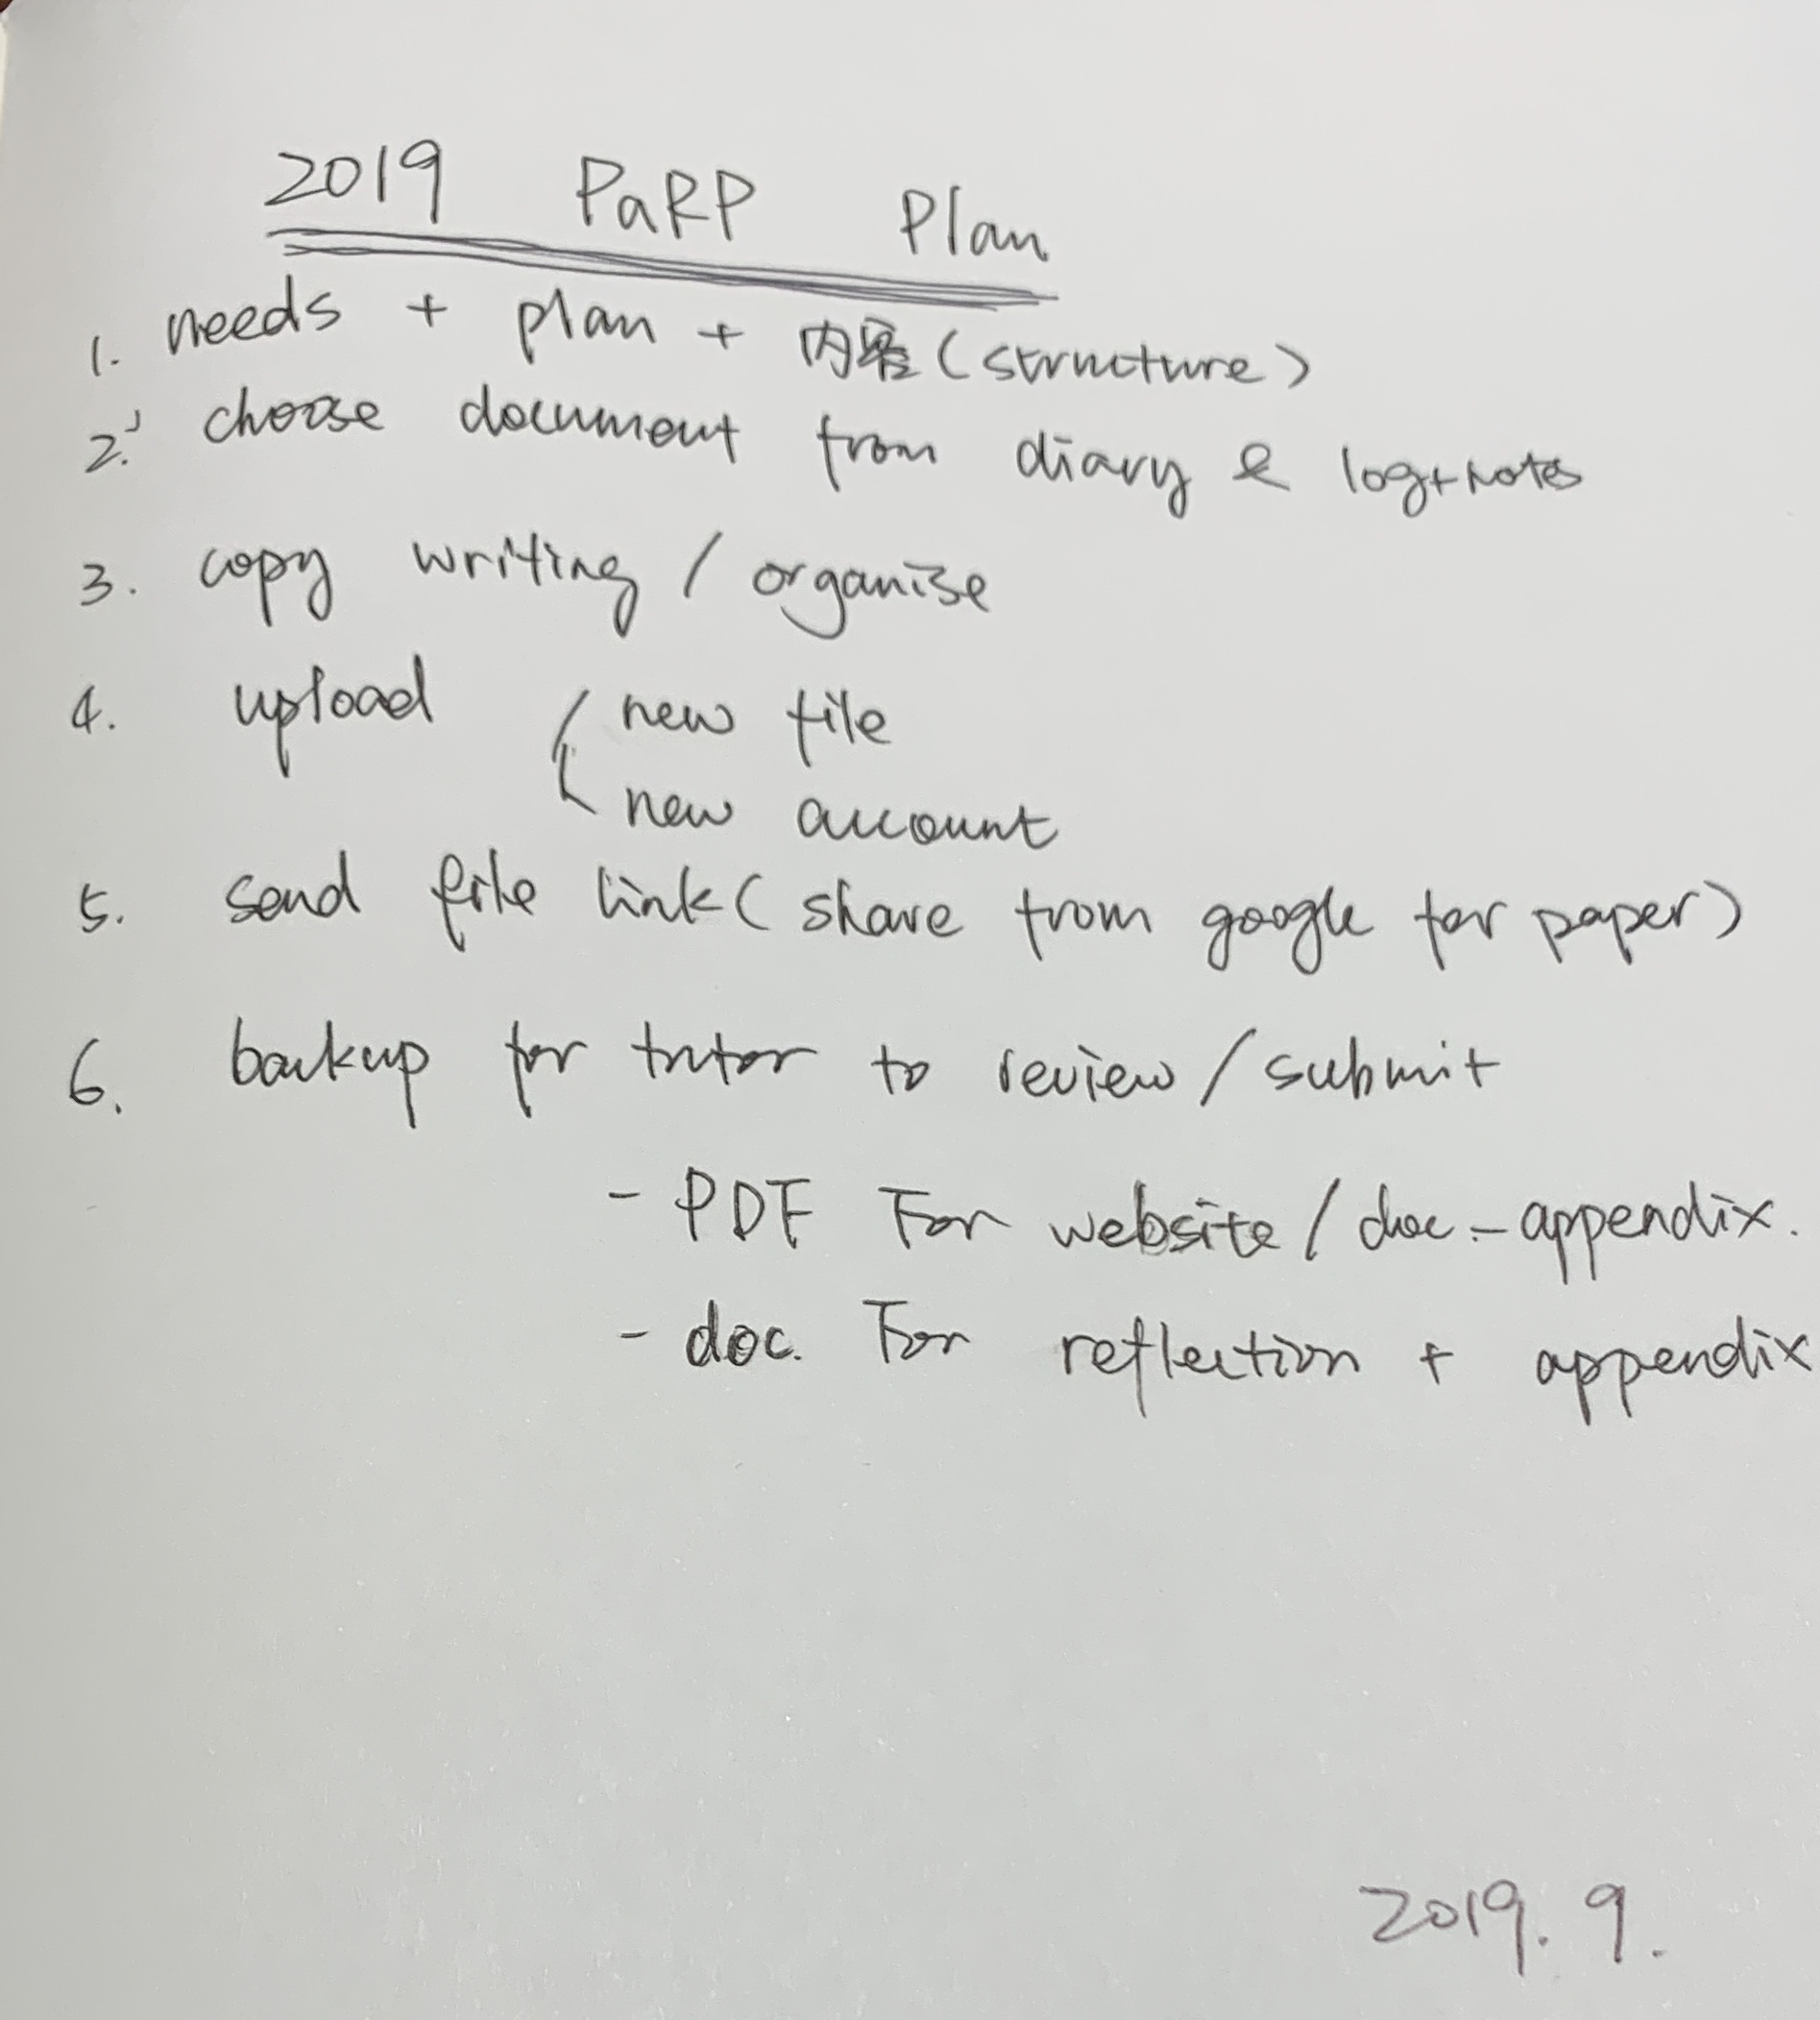 2019 PaRP Plan
1. needs + plan + 内容 (structure)
2. choose document from diary & log+notes
3. copy writing / organise
4. upload new file
new account
5. send file link ( share from google for paper)
6. backup for tutor to review / submit
- PDF For website / doc - appendix.
- doc. For reflection + appendix
2019. 9.